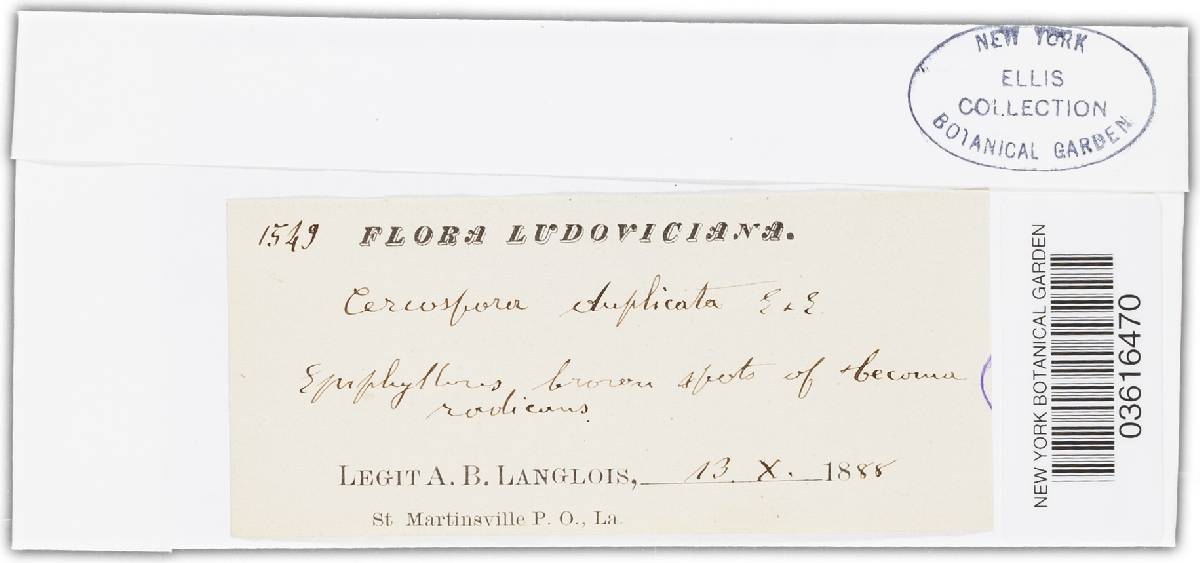 NEW YORK
ELLIS
COLLECTION
BOTANICAL GARDEN
1549 FLORA LUDOVICIANA.
Cercospora duplicata E & E
Epiphyllous, brown spots of Tecoma
radicans.
LEGIT A. B. LANGLOIS, 13. X. 1888
St Martinsville P. O., La.
NEW YORK BOTANICAL GARDEN
03616470